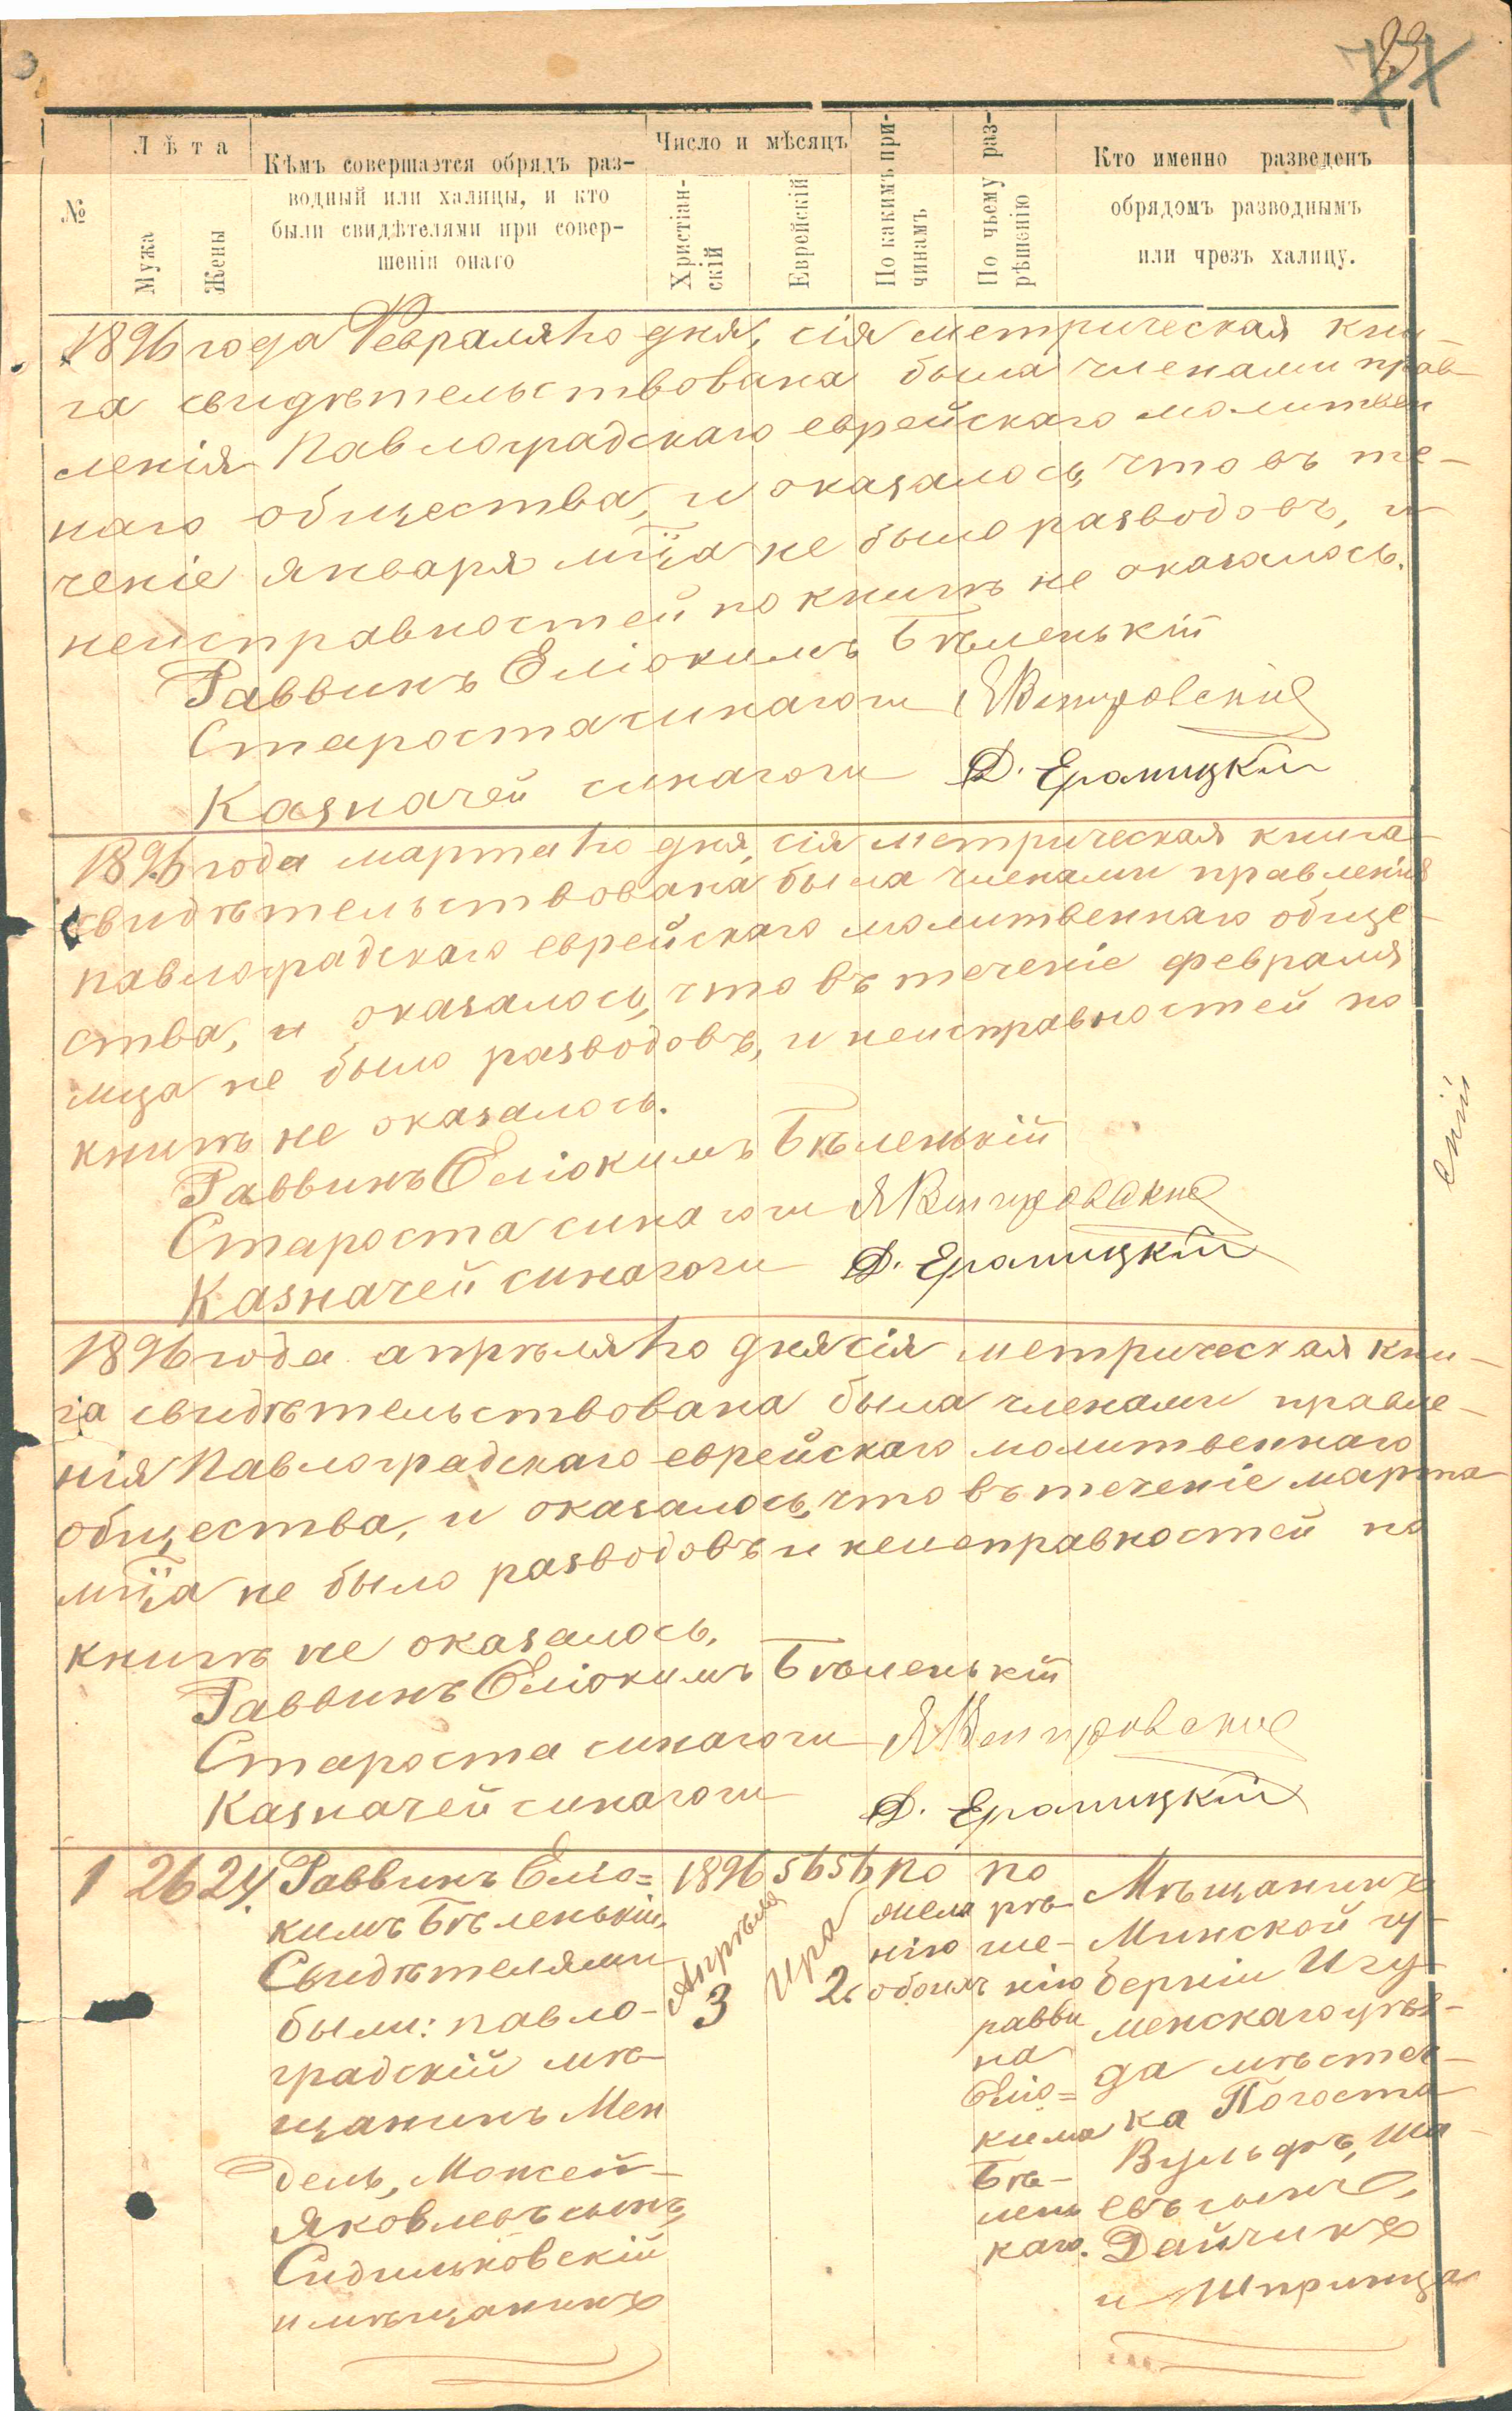 №
Лѣта
Мужа
Жены
Кѣмъ совершается обрядъ раз-
водный или халицы, и кто
были свидѣтелями при совер-
шеніи онаго
Число и мѣсяцъ
Христіан-
скій
Еврейскій
По какимъ при-
чинамъ
По чьему раз-
рѣшенію
Кто именно разведенъ
обрядомъ разводнымъ
или чрезъ халицу.
1896 года Февраля 1го дня, сія метрическая кни-
га свидѣтельствована была членами прав-
ленія Павлоградскаго еврейскаго молитвен
наго общества, и оказалось, что въ те-
ченіе января мца не было разводовъ, и
неисправностей по книгѣ не оказалось.
Раввинъ Еліокимъ Бѣленькій
Староста синагоги
Казначей синагоги
1896 года марта 1го дня, сія метрическая книга
свидѣтельствована была членами правленія
павлоградскаго еврейскаго молитвеннаго обще-
ства, и оказалось, что въ теченіе февраля
мца не было разводовъ, и неисправностей по
книгѣ не оказалось.
Раввинъ Еліокимъ Бѣленькій
Староста синагоги
Казначей синагоги
1896 года апрѣля 1го дня сія метрическая кни-
га свидѣтельствована была членами правле-
нія Павлоградскаго еврейскаго молитвеннаго
общества, и оказалось, что въ теченіе марта
мца не было разводовъ и неисправностей по
книгѣ не оказалось.
Раввинъ Еліокимъ Бѣленькій
Староста синагоги
Казначей синагоги
1 26 24.
Раввинъ Еліо=
кимъ Бѣленькій,
Свидѣтелями
были: павло-
градскій мѣ-
щанинъ Мен
дель, Мовсей-
Яковлевъ сынъ,
Сидиьковскій
и мѣщанинъ
1896
Апрѣля
3
5656
Ира
2
по
жела
нію
обоихъ
по
рѣ-
ше-
нію
равви
на
Еліо=
кима
Бѣ-
лень
каго.
Мѣщанинъ
Минской гу-
берніи Игу-
менскаго уѣз-
да мѣстеч-
ка Погоста
Вульфъ, Ша-
евъ сынъ,
Дайчикъ
и Шпринца